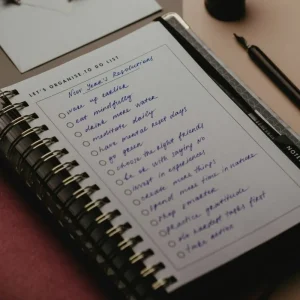 LET'S ORGANISE TO DO LIST
New Year's Resolutions
wake up earlier
eat mindfully
drink more water
meditate daily
have mental reset days
go green
choose the right friends
be ok with saying no
invest in experiences
create more things
spend more time in nature
stop
practice gratitude
do hardest tasks first
take action